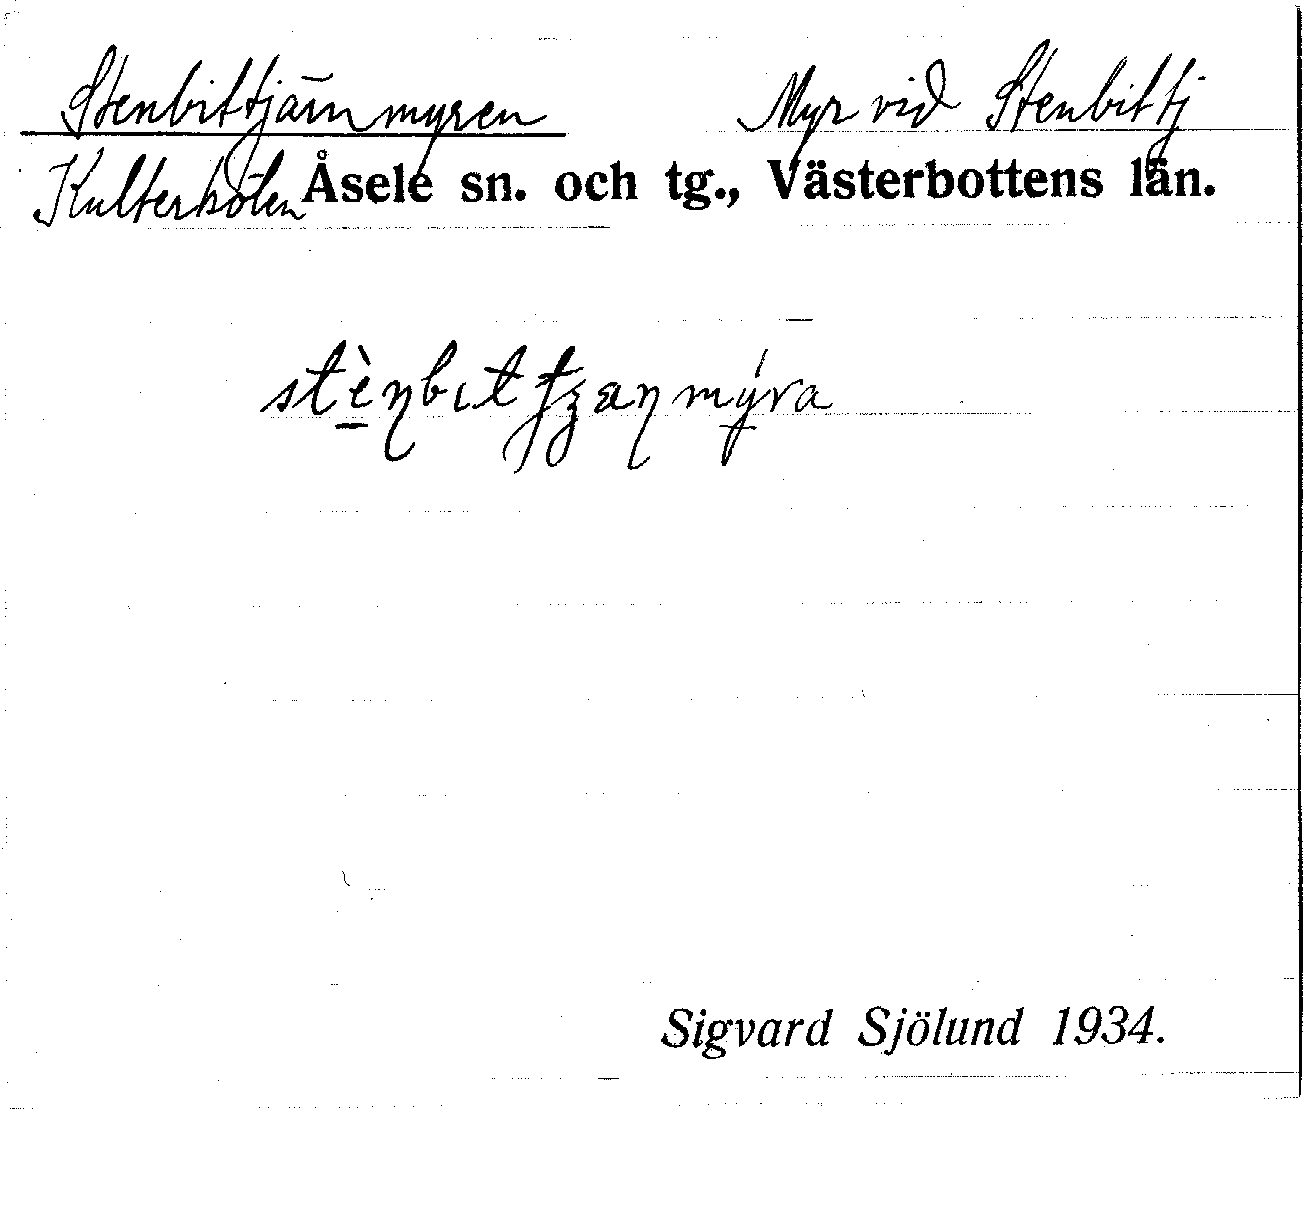 Stenbittjärnmyren Myr vid Stenbittj
Kulterkölen Åsele sn. och tg., Västerbottens län.
Sigvard Sjölund 1934.